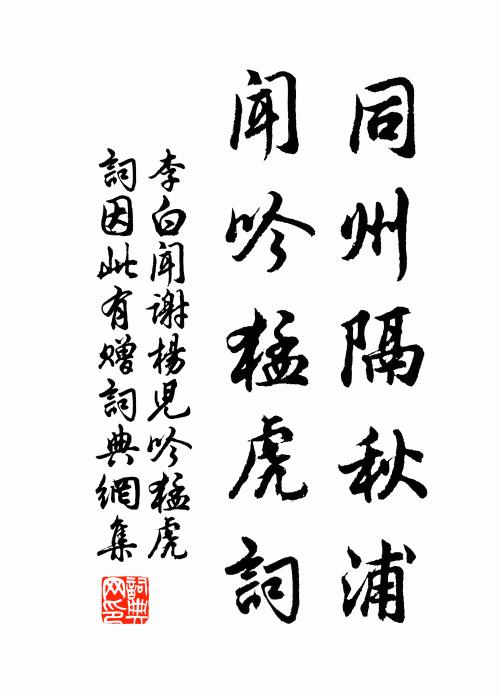 同州隔秋浦
聞吟猛虎詞
李白聞謝楊児吟猛虎
詞因此有贈詞典網集
詞典網印